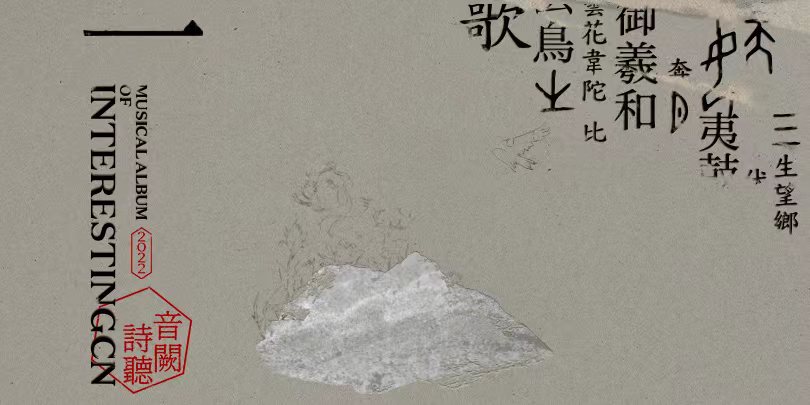 三生望鄉
夷
奔月
御羲和
花韋陀 比
鳥
歌
一
MUSICAL ALBUM
OF
INTERESTINGCN
2022
音闕
詩聽